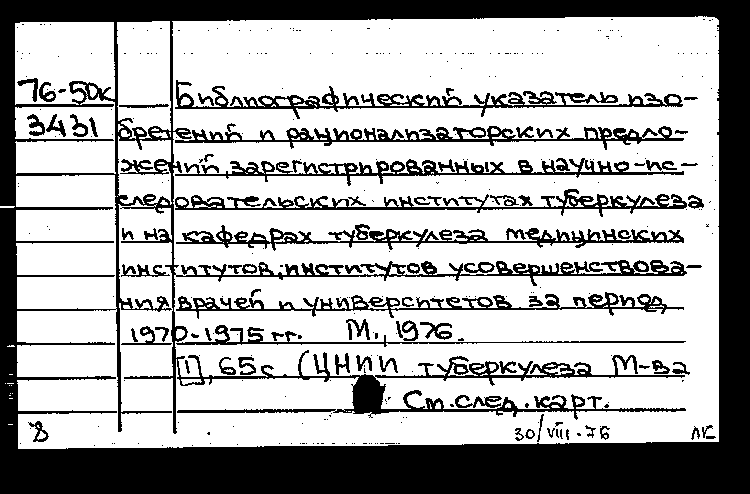 76-50к Библиографический указатель изо-
3431 бретений и рационализаторских предло-
жений, зарегистрированных в научно-ис-
следовательских институтах туберкулеза
и на кафедрах туберкулеза медицинских
институтов, институтов усовершенствова-
ния врачей и университетов за период
1970-1975 гг. М., 1976.
[1], 65с. (ЦНИИ туберкулеза М-ва
См. след. карт.
30/VIII-76 ЛК